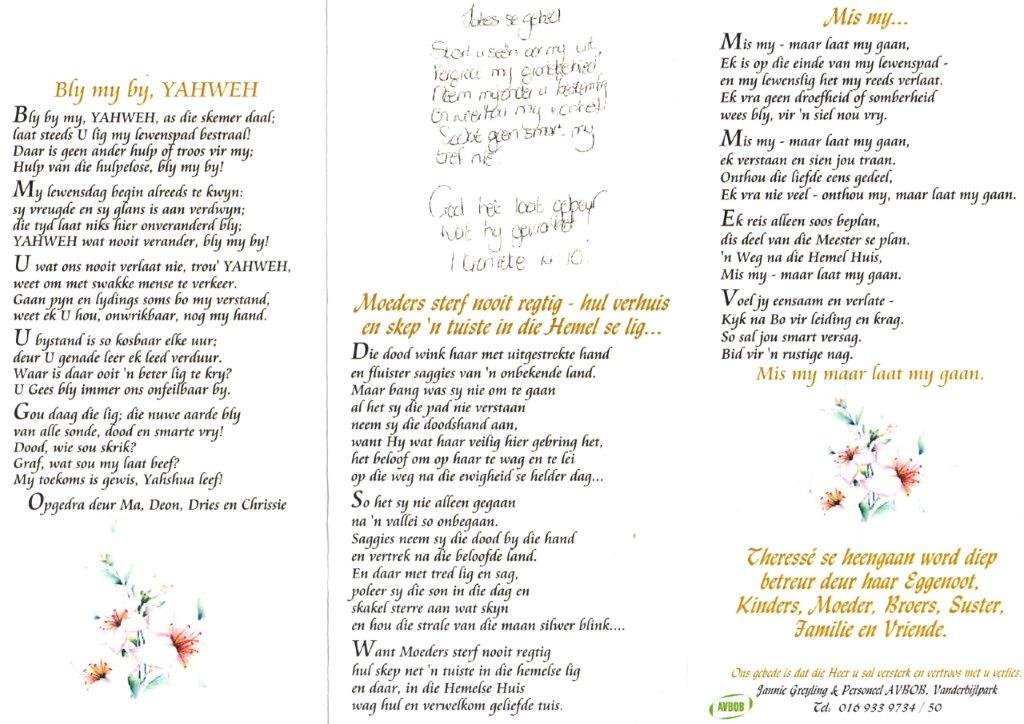 Bly my by, YAHWEH
Bly by my, YAHWEH, as die skemer daal;
laat steeds U lig my lewenspad bestraal!
Daar is geen ander hulp of troos vir my;
Hulp van die hulpelose, bly my by!
My lewensdag begin alreeds te kwyn:
sy vreugde en sy glans is aan verdwyn;
die tyd laat niks hier onveranderd bly;
YAHWEH wat nooit verander, bly my by!
U wat ons nooit verlaat nie, trou' YAHWEH,
weet om met swakke mense te verkeer.
Gaan pyn en lydings soms bo my verstand,
weet ek U hou, onwrikbaar, nog my hand.
U bystand is so kosbaar elke uur;
deur U genade leer ek leed verduur.
Waar is daar ooit 'n beter lig te kry?
U Gees bly immer ons onfeilbaar by.
Gou daag die lig; die nuwe aarde bly
van alle sonde, dood en smarte vry!
Dood, wie sou skrik?
Graf, wat sou my laat beef?
My toekoms is gewis, Yahshua leef!
Opgedra deur Ma, Deon, Dries en Chrissie
se gebed
uit,
my
Neem my onder u
my
geen smart my
tref nie.
God het laat gebeur
wat hy
10.
Moeders sterf nooit regtig - hul verhuis
en skep 'n tuiste in die Hemel se lig...
Die dood wink haar met uitgestrekte hand
en fluister saggies van 'n onbekende land.
Maar bang was sy nie om te gaan
al het sy die pad nie verstaan
neem sy die doodshand aan,
want Hy wat haar veilig hier gebring het,
het beloof om op haar te wag en te lei
op die weg na die ewigheid se helder dag...
So het sy nie alleen gegaan
na 'n vallei so onbegaan.
Saggies neem sy die dood by die hand
en vertrek na die beloofde land.
En daar met tred lig en sag,
poleer sy die son in die dag en
skakel sterre aan wat skyn
en hou die strale van die maan silwer blink....
Want Moeders sterf nooit regtig
hul skep net 'n tuiste in die hemelse lig
en daar, in die Hemelse Huis
wag hul en verwelkom geliefde tuis.
Mis my...
Mis my - maar laat my gaan,
Ek is op die einde van my lewenspad -
en my lewenslig het my reeds verlaat.
Ek vra geen droefheid of somberheid
wees bly, vir 'n siel nou vry.
Mis my - maar laat my gaan,
ek verstaan en sien jou traan.
Onthou die liefde eens gedeel,
Ek vra nie veel - onthou my, maar laat my gaan.
Ek reis alleen soos beplan,
dis deel van die Meester se plan.
'n Weg na die Hemel Huis,
Mis my - maar laat my gaan.
Voel jy eensaam en verlate -
Kyk na Bo vir leiding en krag.
So sal jou smart versag.
Bid vir 'n rustige nag.
Mis my maar laat my gaan.
Theressé se heengaan word diep
betreur deur haar Eggenoot,
Kinders, Moeder, Broers, Suster,
Familie en Vriende.
Ons gebede is dat die Heer u sal versterk en vertroos met u verlies.
Jannie Greyling & Personeel AVBOB, Vanderbijlpark
AVBOB
Tel: 016 933 9734 / 50